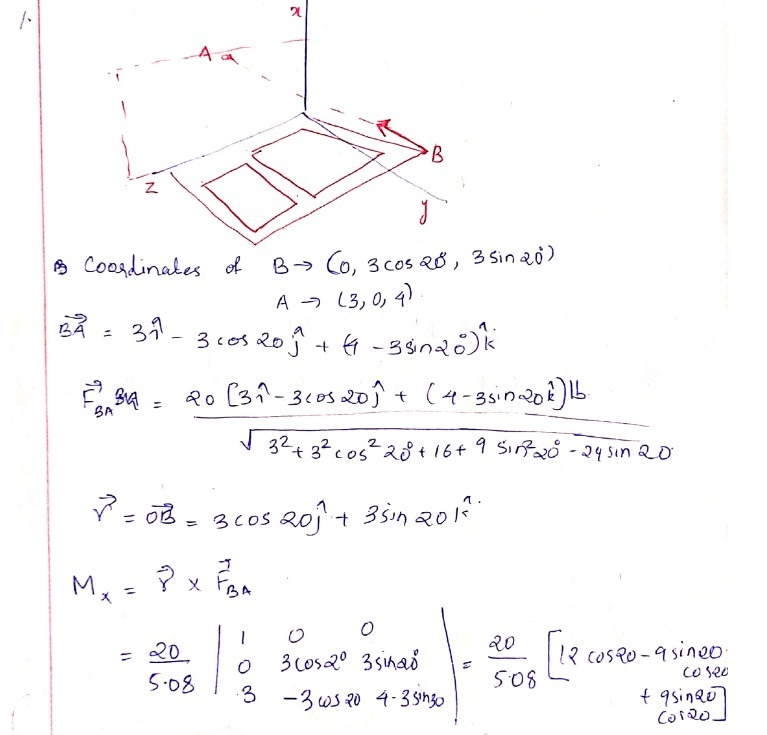 1.
x
A
B
Z
y
Coordinates of B → (0, 3cos20°, 3sin20°)
A → (3,0,4)
BA⃗ = 3î - 3cos20ĵ + (4 - 3sin20°)k̂
F⃗_BA = 20 [3î - 3cos20ĵ + (4-3sin20k̂)lb
√3²+3²cos²20°+16+9 sin²20° - 24sin20
r⃗ = OB⃗ = 3cos20ĵ + 3sin20k̂
M_x = r⃗ × F⃗_BA
= 20/5.08 | 1 0 0 | = 20/5.08 [12cos20-9sin20
0 3cos20 3sin20° cos20
3 -3cos20 4-3sin20 + 9sin20
cos20]